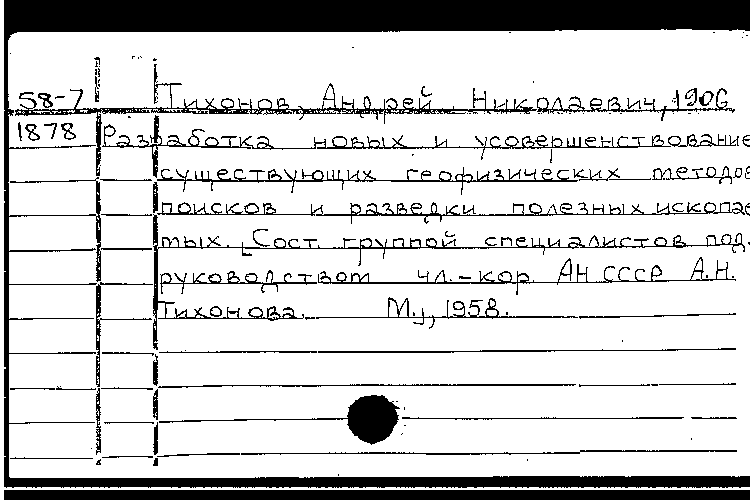 58-7 Тихонов, Андрей Николаевич, 1906
1878 Разработка новых и усовершенствование
существующих геофизических методов
поисков и разведки полезных ископае
мых. [Сост. группой специалистов под.
руководством чл.-кор. АН СССР А.Н.
Тихонова. М., 1958.